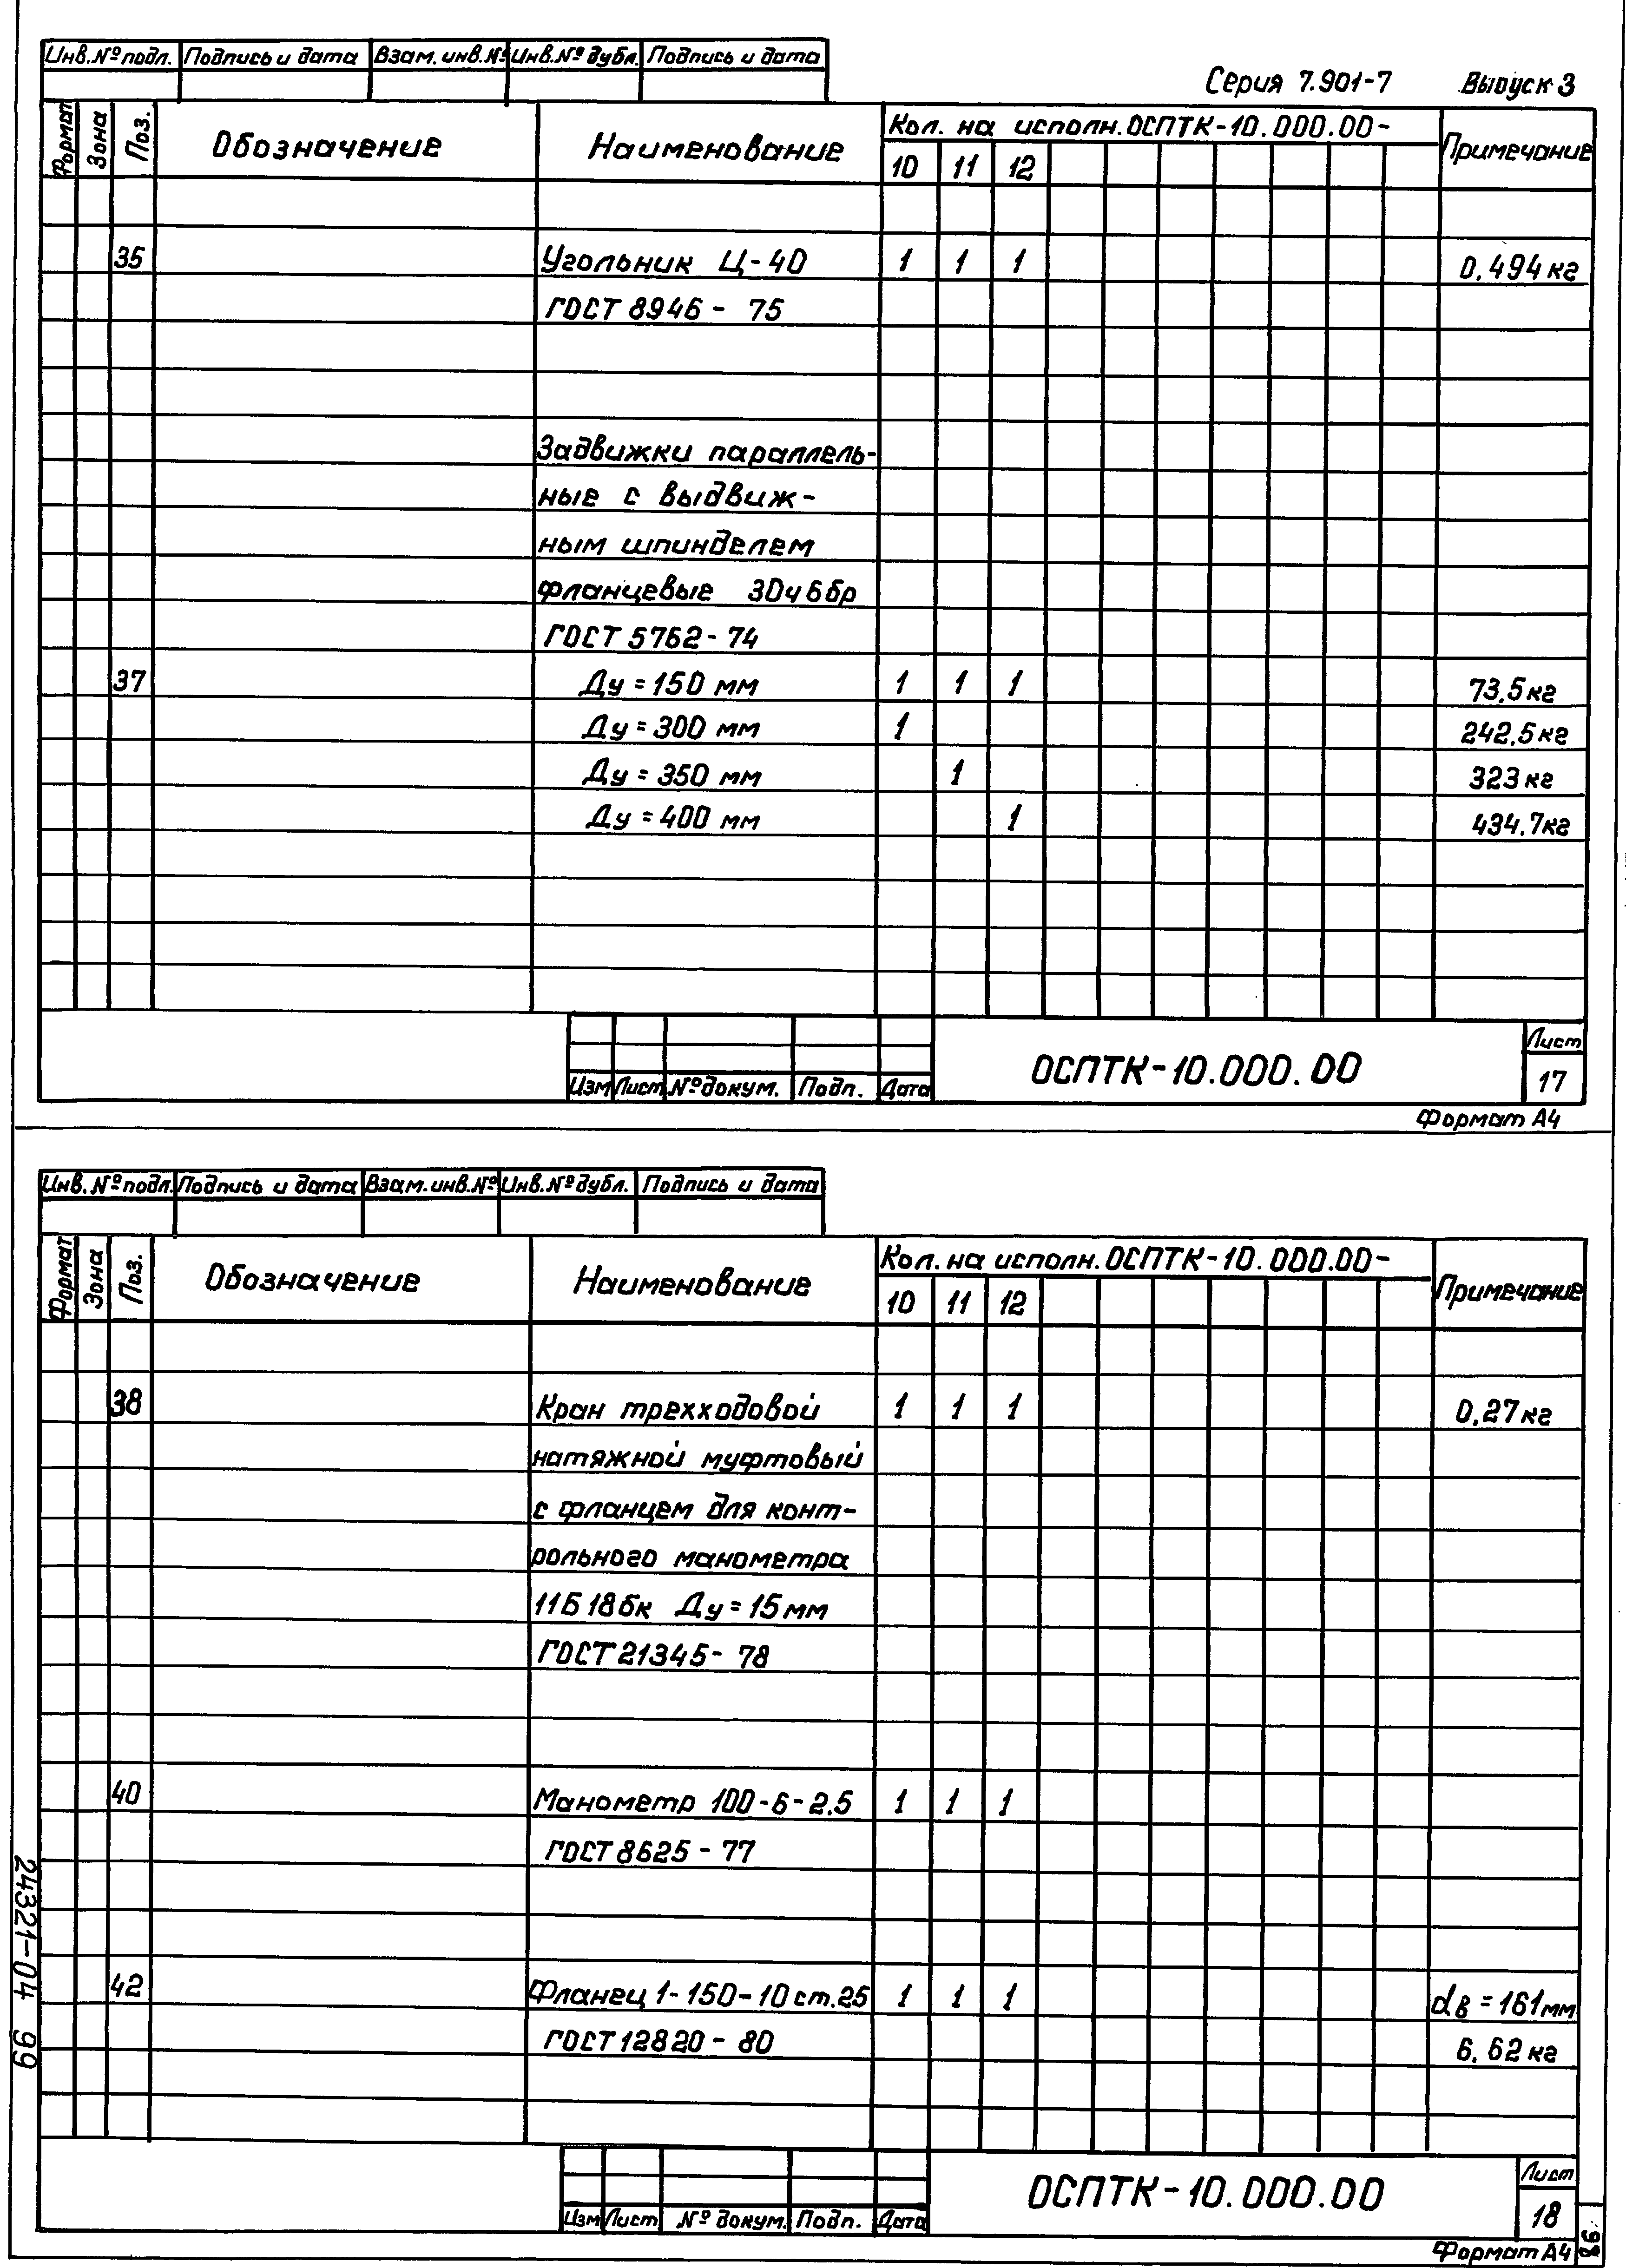 Инв.№подл. Подпись и дата Взам.инв.№ Инв.№дубл. Подпись и дата
Серия 7.901-7 Выпуск 3
Формат Зона Поз. Обозначение Наименование Кол. на исполн.ОСПТК-10.000.00- Примечание
10 11 12
35 Угольник Ц-40 1 1 1 0,494кг
ГОСТ 8946 - 75
Задвижки параллель-
ные с выдвиж-
ным шпинделем
фланцевые 30ч6бр
ГОСТ 5762-74
37 Ду=150 мм 1 1 1 73,5кг
Ду=300 мм 1 242,5кг
Ду=350 мм 1 323кг
Ду=400 мм 1 434,7кг
ОСПТК-10.000.00
Лист
17
Изм Лист №докум. Подп. Дата
Формат А4
Инв.№подл. Подпись и дата Взам.инв.№ Инв.№дубл. Подпись и дата
Формат Зона Поз. Обозначение Наименование Кол.на исполн.ОСПТК-10.000.00- Примечание
10 11 12
38 Кран трехходовой 1 1 1 0,27кг
натяжной муфтовый
с фланцем для конт-
рольного манометра
11Б18бк Ду=15мм
ГОСТ 21345-78
40 Манометр 100-6-2,5 1 1 1
ГОСТ 8625-77
42 Фланец 1-150-10ст.25 1 1 1 dв=161мм
ГОСТ 12820-80 6,62кг
24321-04 99
ОСПТК-10.000.00
Лист
18
Изм Лист № докум. Подп. Дата
Формат А4